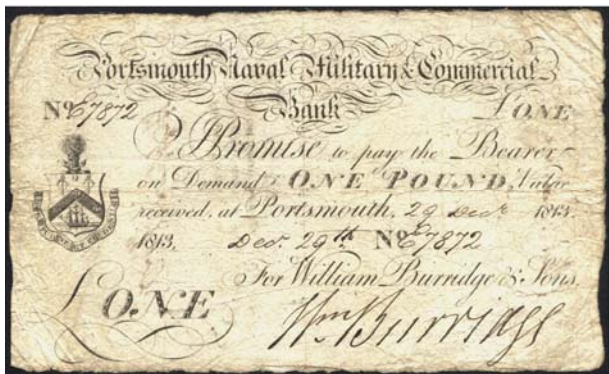 Portsmouth Naval Military & Commercial
Bank
No E7872
£ONE
I Promise to pay the Bearer
on Demand ONE POUND Value
received, at Portsmouth, 29 Decr. 1813.
1813. Decr. 29th No E7872
For William Burridge & Sons,
£ONE
Wm Burridge